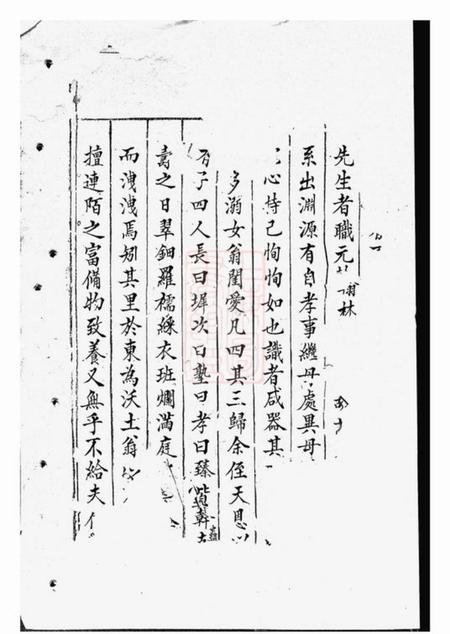 先生者職元翰林
系出淵源有自孝事繼母處異母
心恃己恂恂如也識者咸器其
多溺女翁閨愛凡四其三歸余侄天恩
子四人長曰墀次曰塾曰孝曰臻皆幹蠱
壽之日翠鈿羅襦綵衣班斕滿庭
而洩洩焉矧其里於東為沃土翁
擅連陌之富備物致養又無乎不給夫